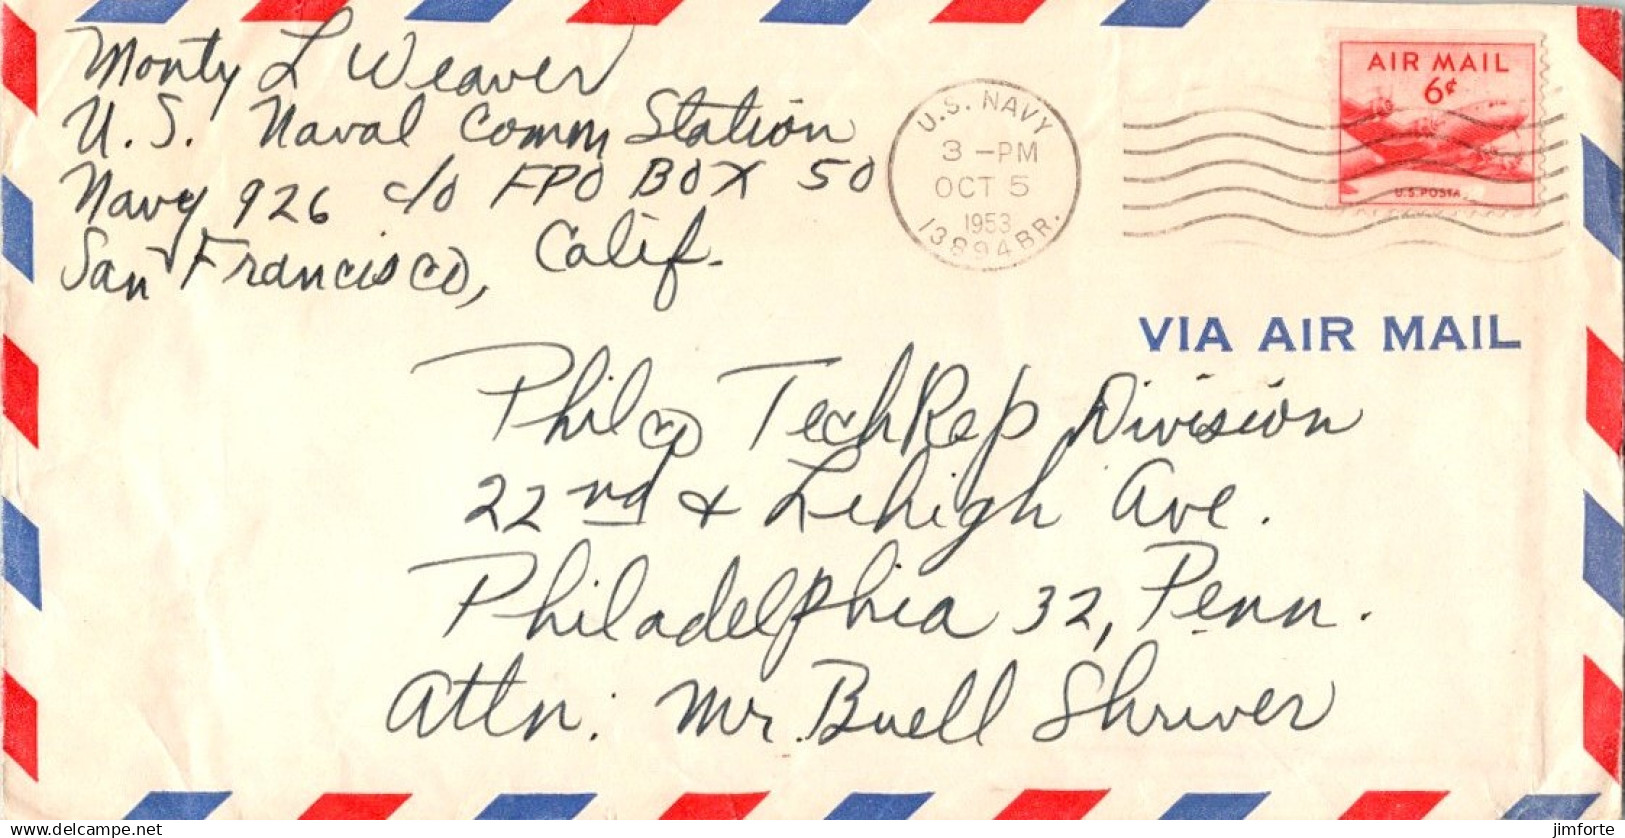 Monty L Weaver
U.S. Naval Comm Station
Navy 926 c/o FPO BOX 50
San Francisco, Calif.
U.S. NAVY
3 -PM
OCT 5
1953
13894 BR.
AIR MAIL
6¢
U.S. POSTA
VIA AIR MAIL
Philco TechRep Division
22nd & Lehigh Ave.
Philadelphia 32, Penn.
Attn: Mr. Buell Shriver
delcampe.net
jimforte